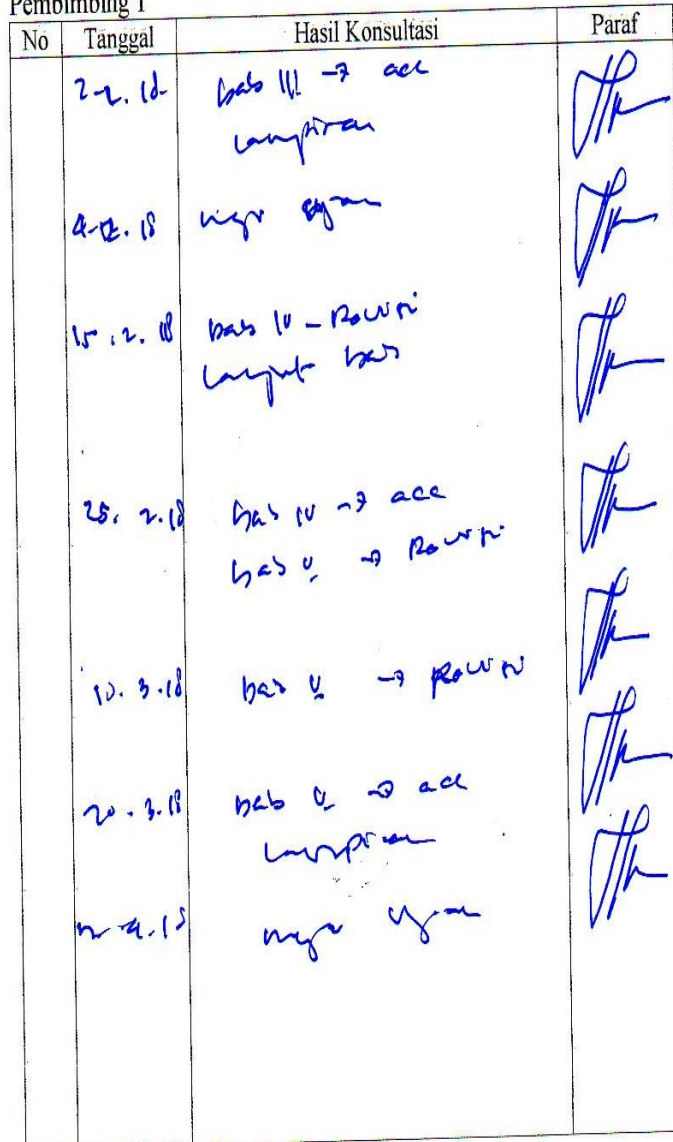 Pembimbing 1
No Tanggal Hasil Konsultasi Paraf
2-2.18 bab III → acc
lampiran
4-12.18 maju ujian
15.2.18 bab IV - Revisi
Lanjut bab
25.2.18 bab IV → acc
bab V → Revisi
10.3.18 bab V → Revisi
20.3.18 bab V → acc
Lampiran
4.18 maju ujian